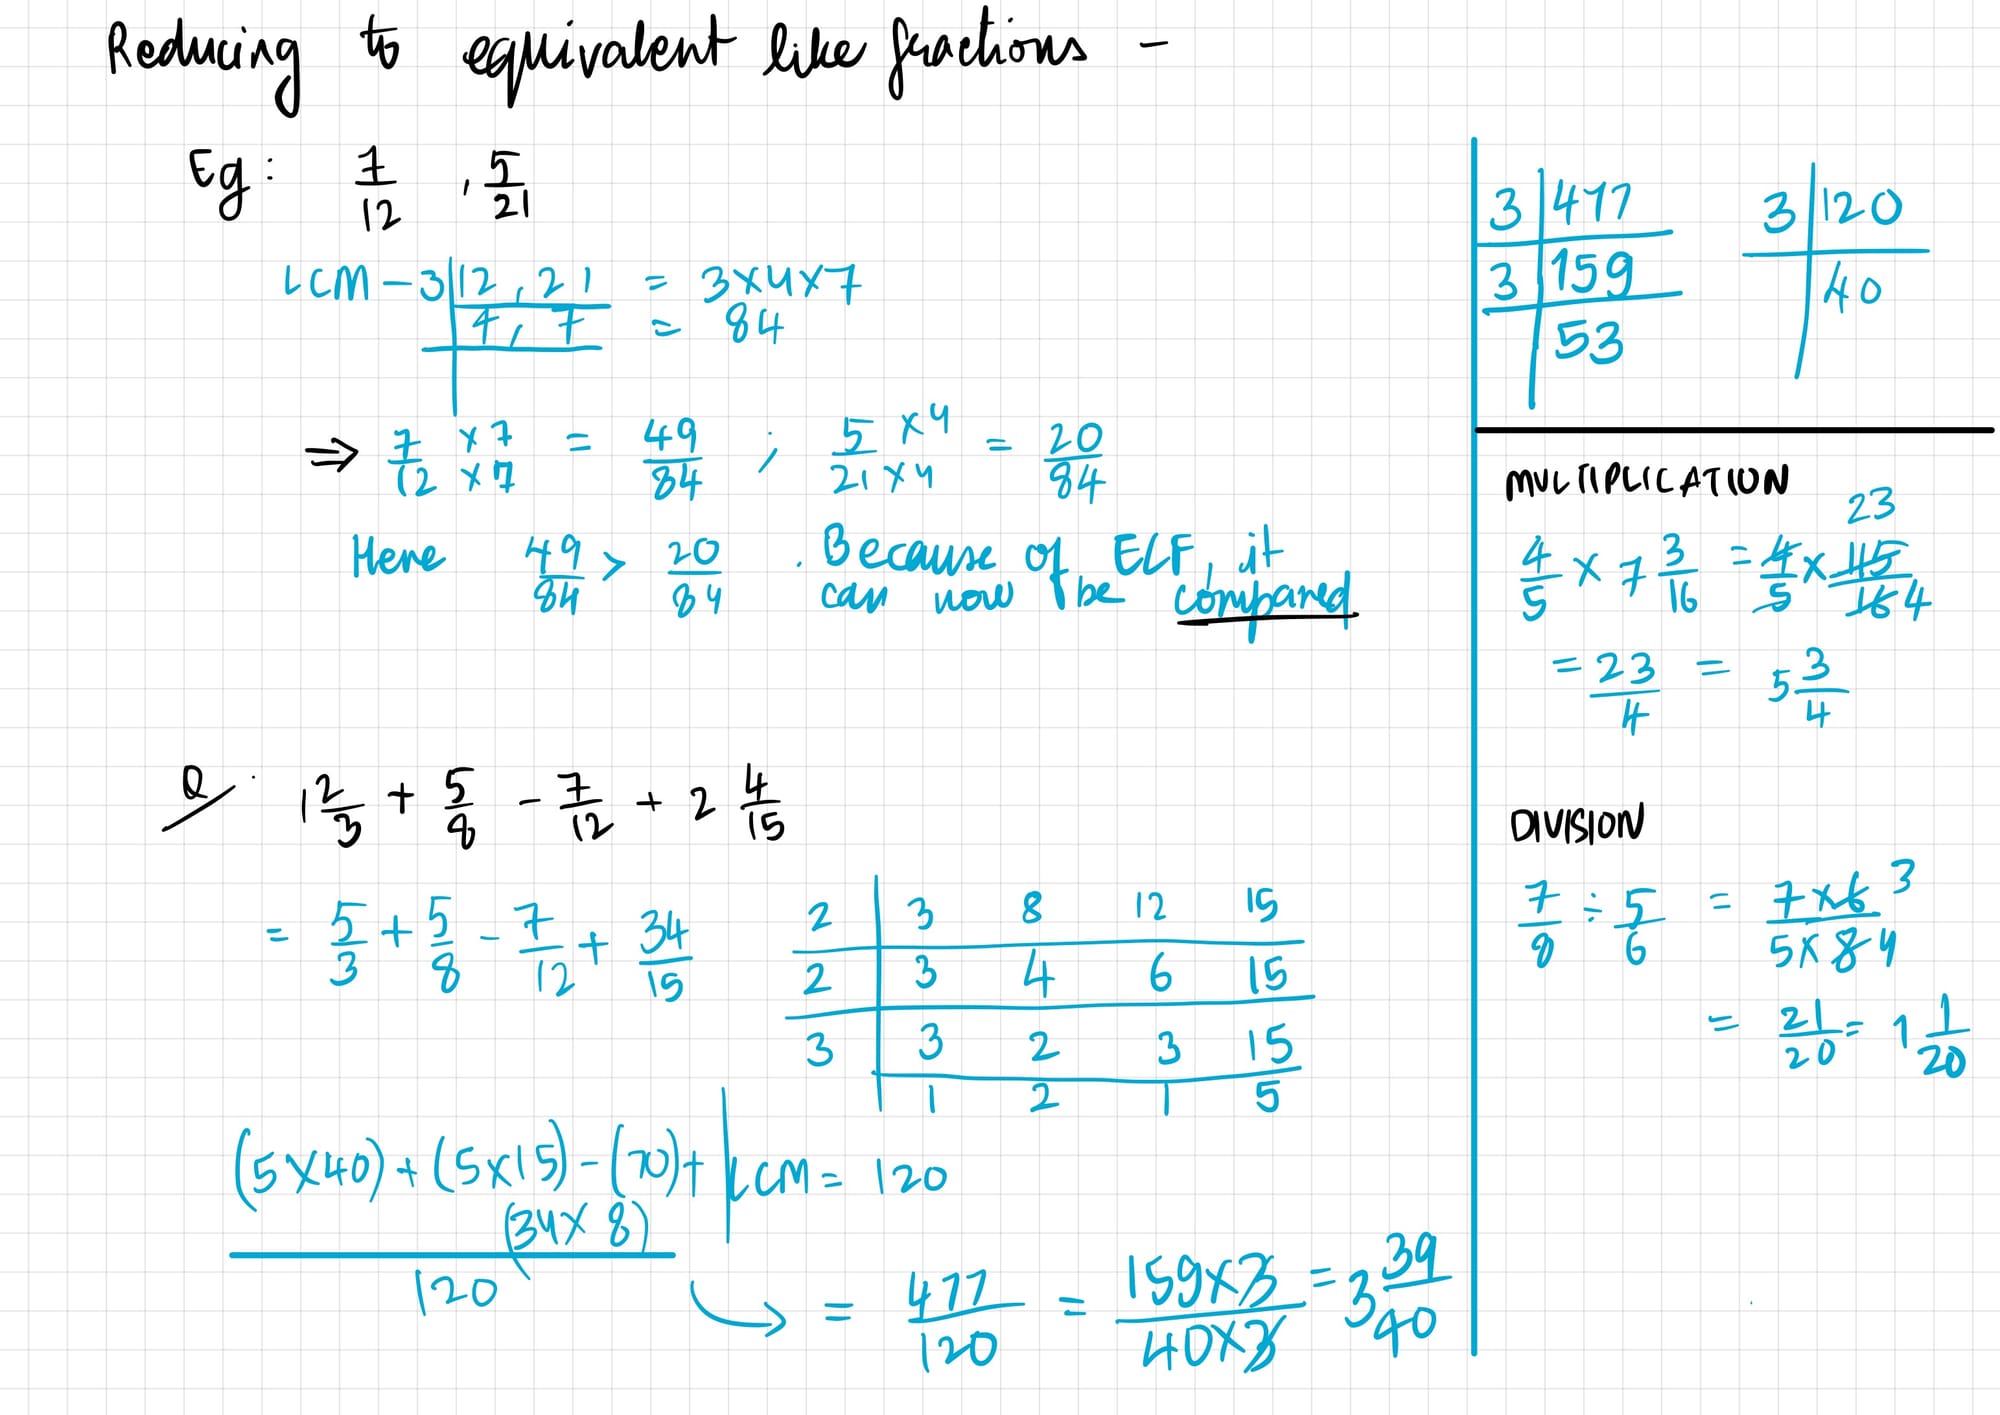 Reducing to equivalent like fractions -
Eg: 7/12 , 5/21
LCM - 3 | 12, 21 = 3×4×7
4, 7 = 84
⇒ 7/12 ×7/×7 = 49/84 ; 5/21 ×4/×4 = 20/84
Here 49/84 > 20/84 . Because of ELF, it
can now be compared
Q. 1 2/3 + 5/8 - 7/12 + 2 4/15
= 5/3 + 5/8 - 7/12 + 34/15
2 | 3 8 12 15
2 | 3 4 6 15
3 | 3 2 3 15
1 2 1 5
(5×40) + (5×15) - (70) +
(34×8)
120
LCM = 120
= 477/120 = 159×3/40×3 = 3 39/40
3 | 477
3 | 159
53
3 | 120
40
MULTIPLICATION
23
4/5 × 7 3/16 = 4/5 × 115/16 4
= 23/4 = 5 3/4
DIVISION
7/8 ÷ 5/6 = 7×6 3/5×8 4
= 21/20 = 1 1/20